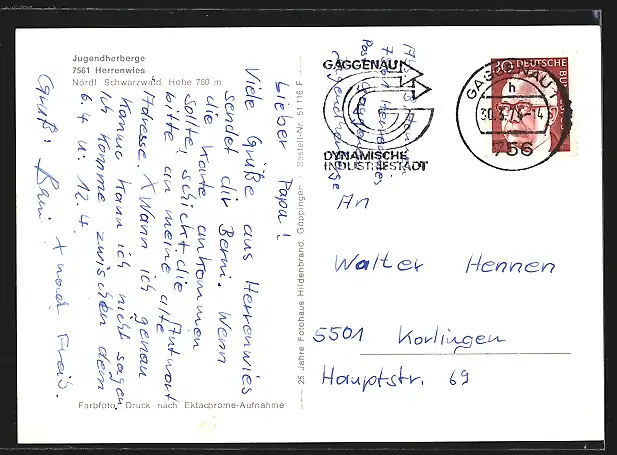 Jugendherberge
7561 Herrenwies
Nördl. Schwarzwald, Höhe 760 m
Lieber Papa!
Viele Grüße aus Herrenwies
sendet dir Berni. Wenn
die Karte ankommen
sollte, schickt die Antwort
bitte an meine alte
Adresse. X Wann ich genau
komme kann ich nicht sagen.
Ich komme zwischen dem
6.4 u. 12.4.
Gruß:
X nach
Farbfoto. Druck nach Ektachrome-Aufnahme
25 Jahre Fotohaus Hildenbrand, Göppingen Bestell-Nr. 51 116 F
7561 Herrenwies
Jugendherberge
GAGGENAU
DYNAMISCHE
INDUSTRIESTADT
GAGGENAU 1
h
756
30
DEUTSCHE BUNDESPOST
An
Walter Hennen
5501 Korlingen
Hauptstr. 69